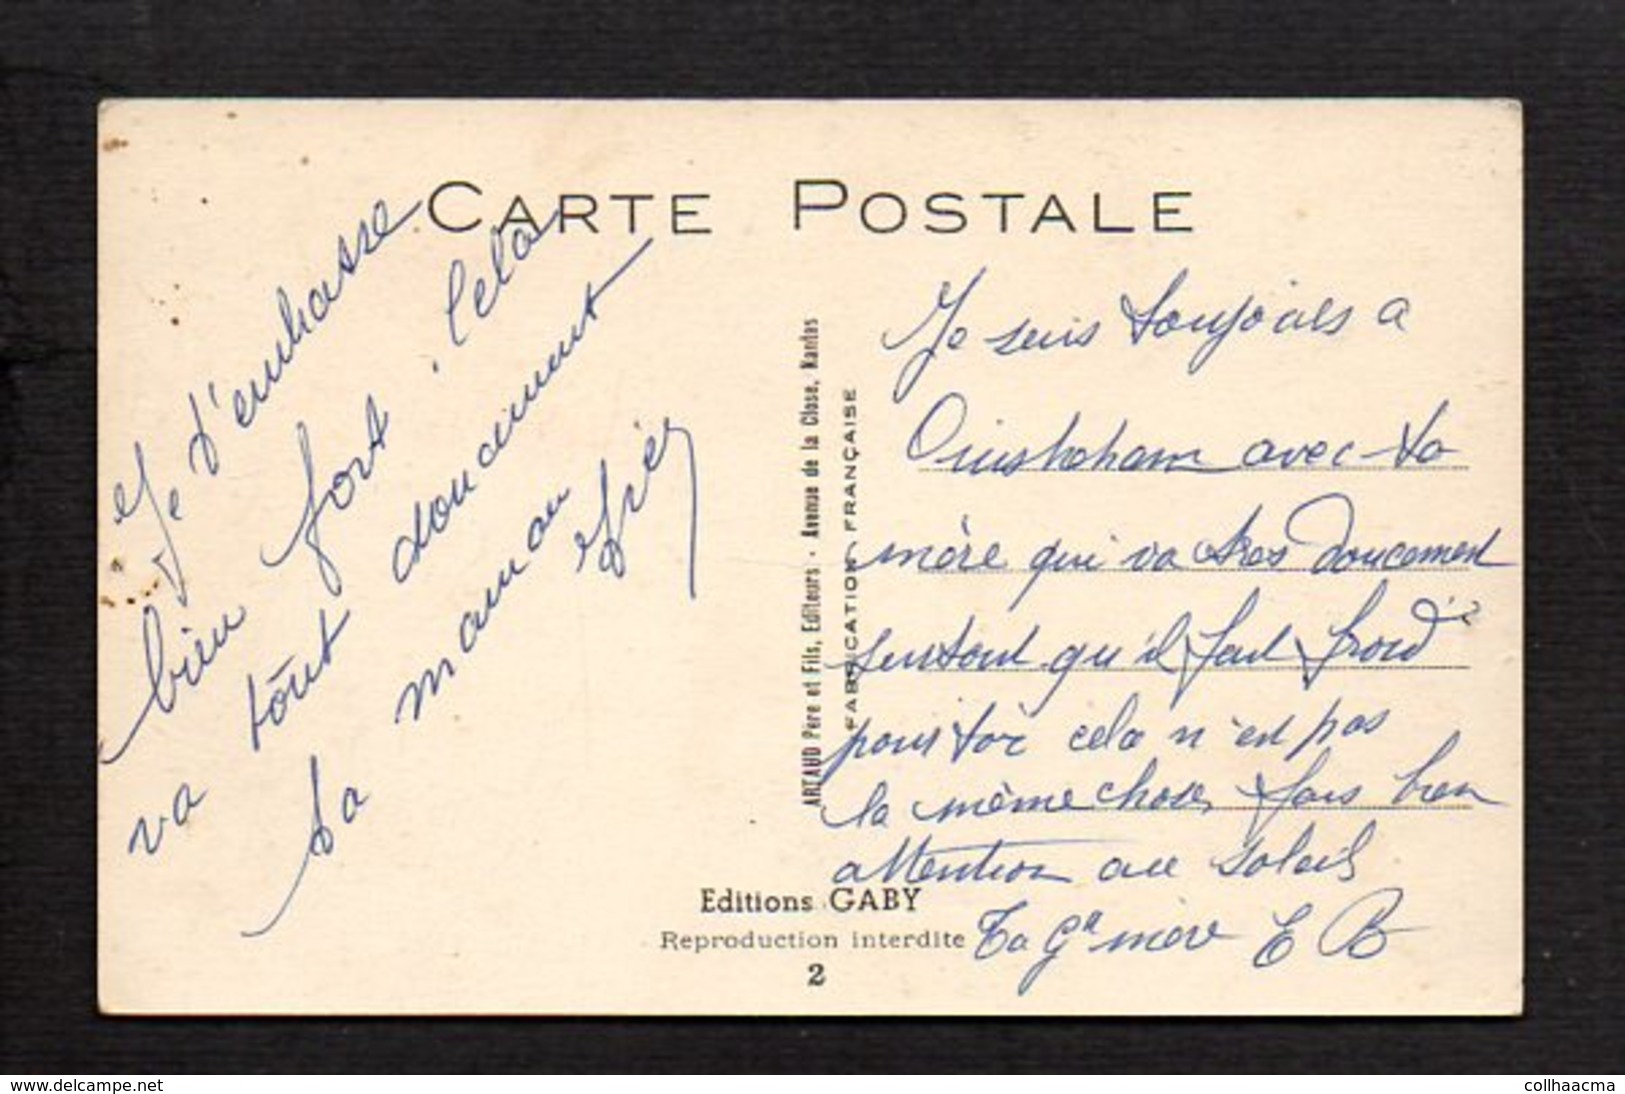 CARTE POSTALE
Je t'embrasse
bien fort. Cela
va tout doucement
ta maman
Je suis toujours a
Ouistreham avec ta
mère qui va tres doucement
surtout qu'il fait froid
pour toi cela n'est pas
la même chose, fais bien
attention au soleil
Ta Gd mère E B
ARTAUD Père et Fils, Editeurs - Avenue de la Close, Nantes
FABRICATION FRANÇAISE
Editions GABY
Reproduction interdite
2
www.delcampe.net
collhaacma